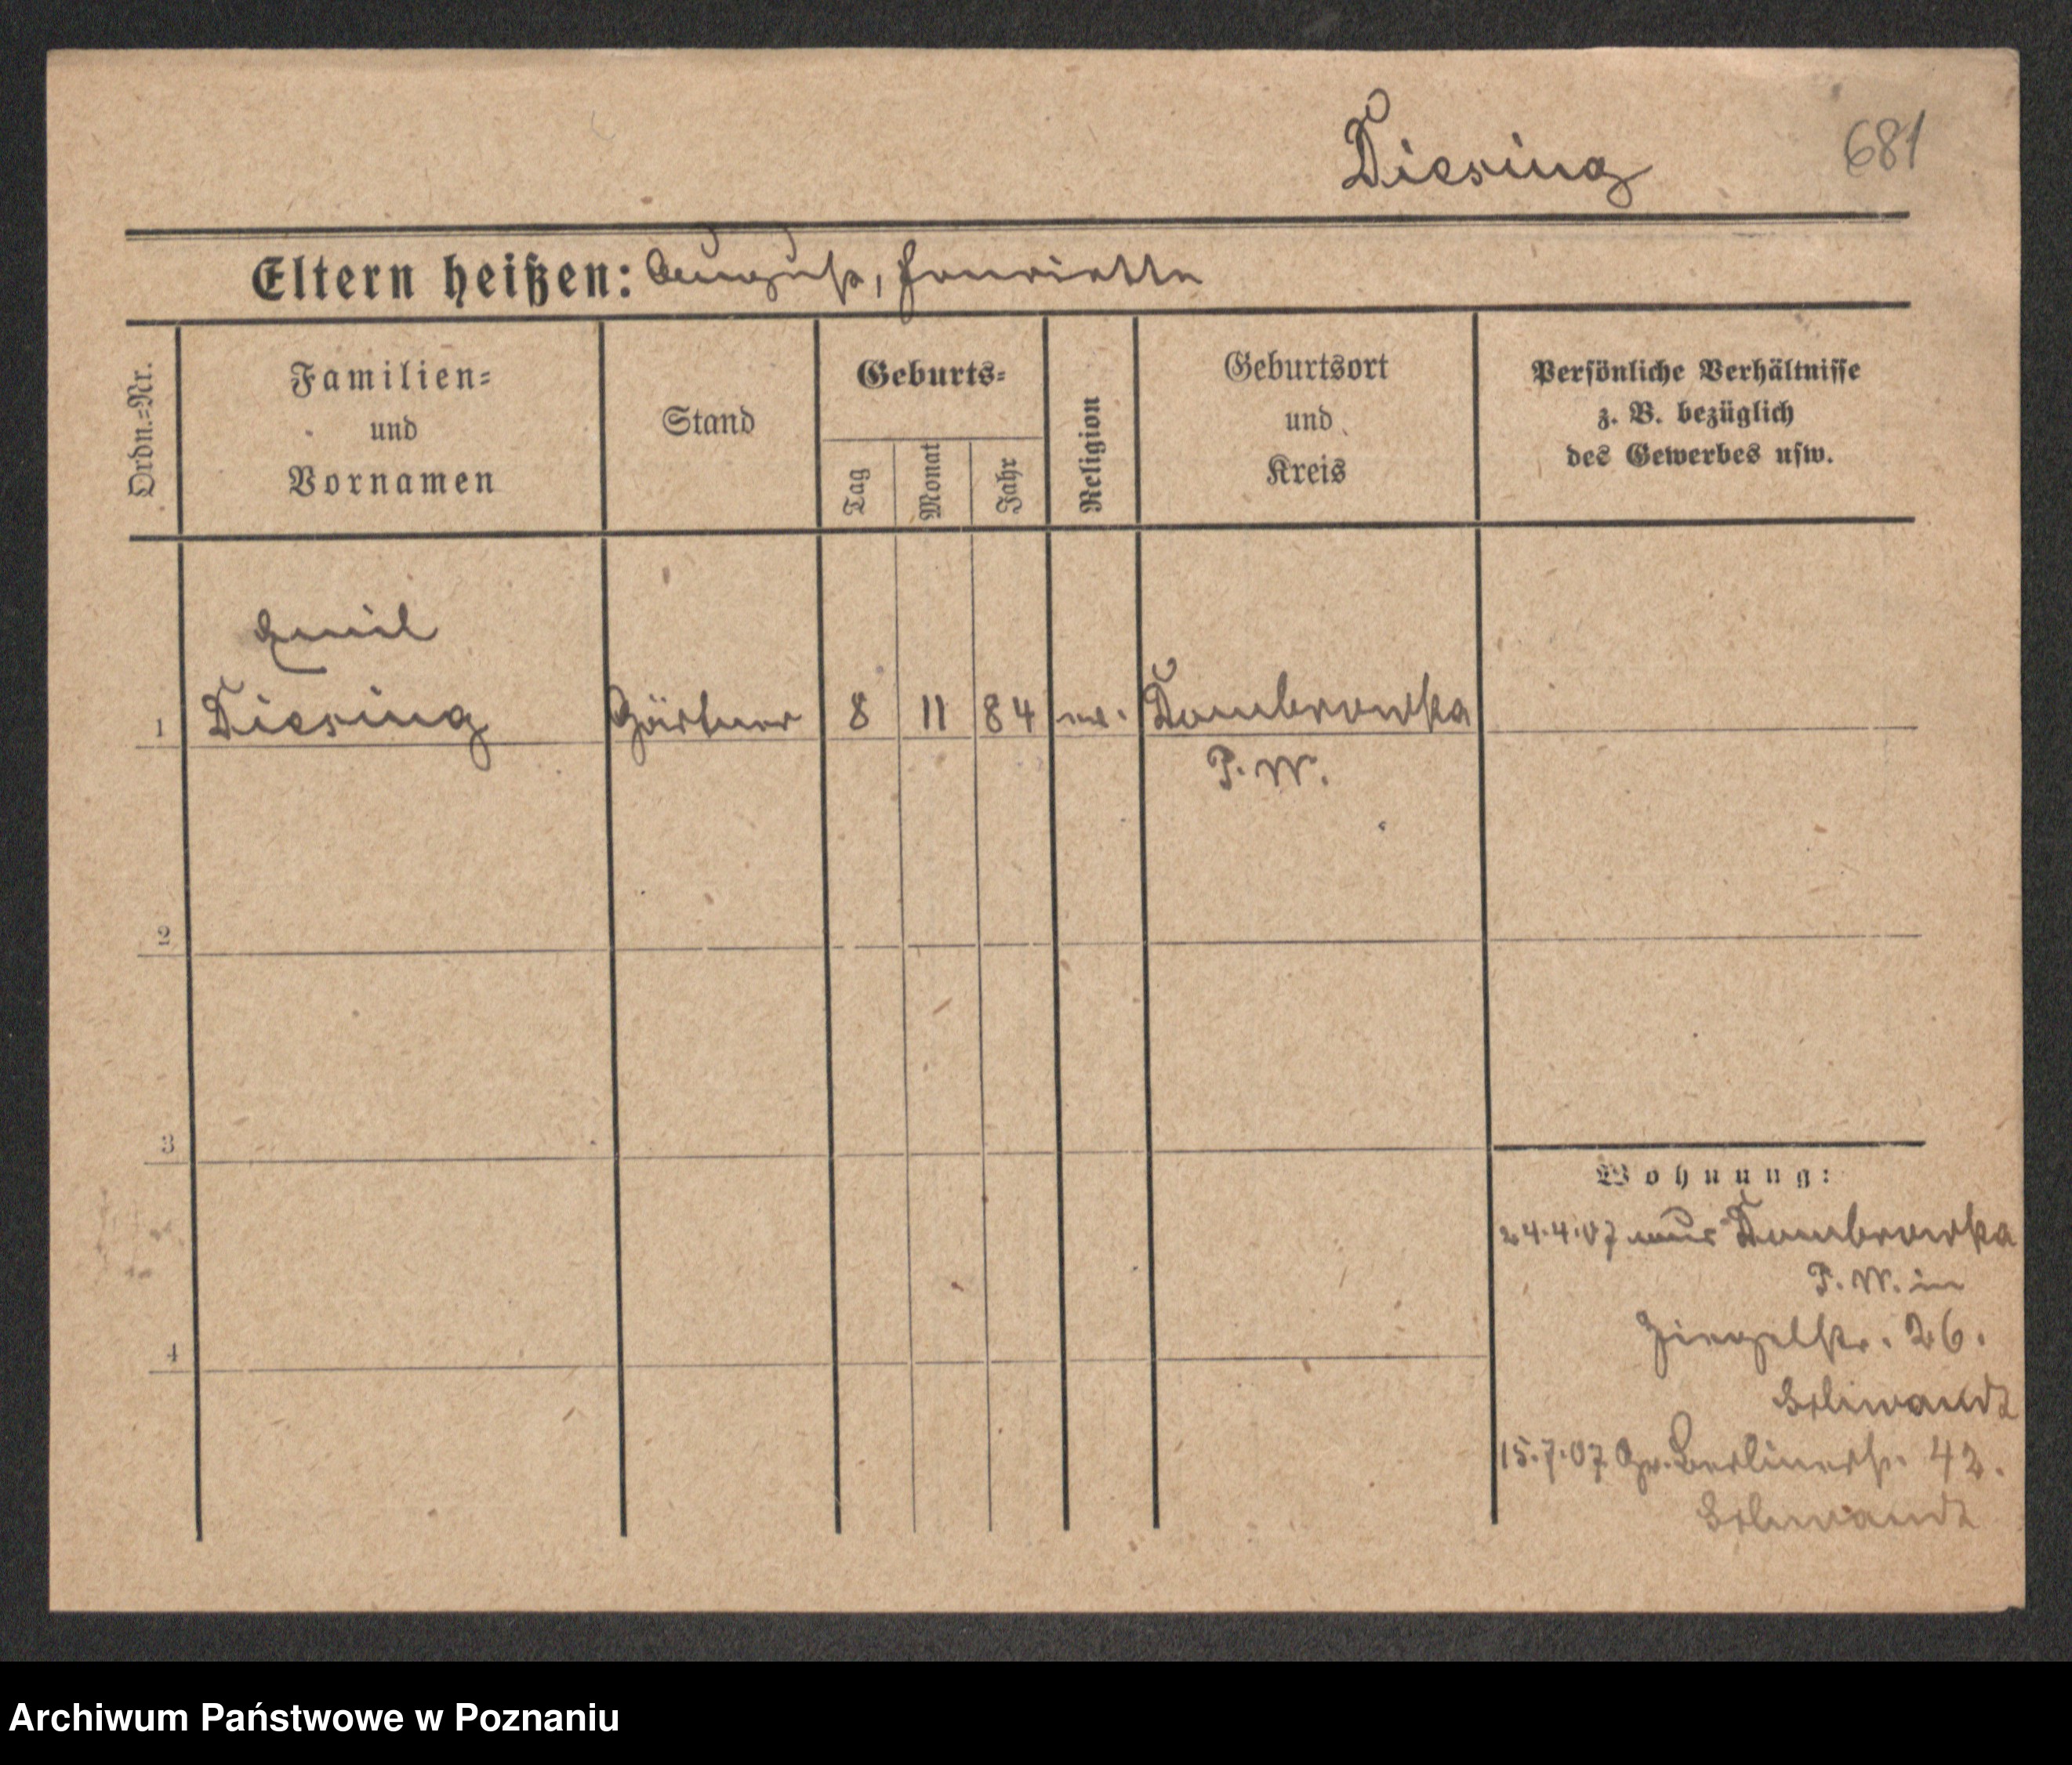 Diesing 681
Eltern heißen: August, Henriette
Ordn.=Nr.
Familien=
und
Vornamen
Stand
Geburts=
Tag
Monat
Jahr
Religion
Geburtsort
und
Kreis
Persönliche Verhältnisse
z. B. bezüglich
des Gewerbes usw.
Emil
1 Diesing Gärtner 8 11 84 ev. Dombrowka
P. W.
2
3
4
Wohnung:
24.4.07 aus Dombrowka
P. W. in
Ziegelstr. 26.
15.7.07 Gr. Berlinerstr. 42.
Archiwum Państwowe w Poznaniu